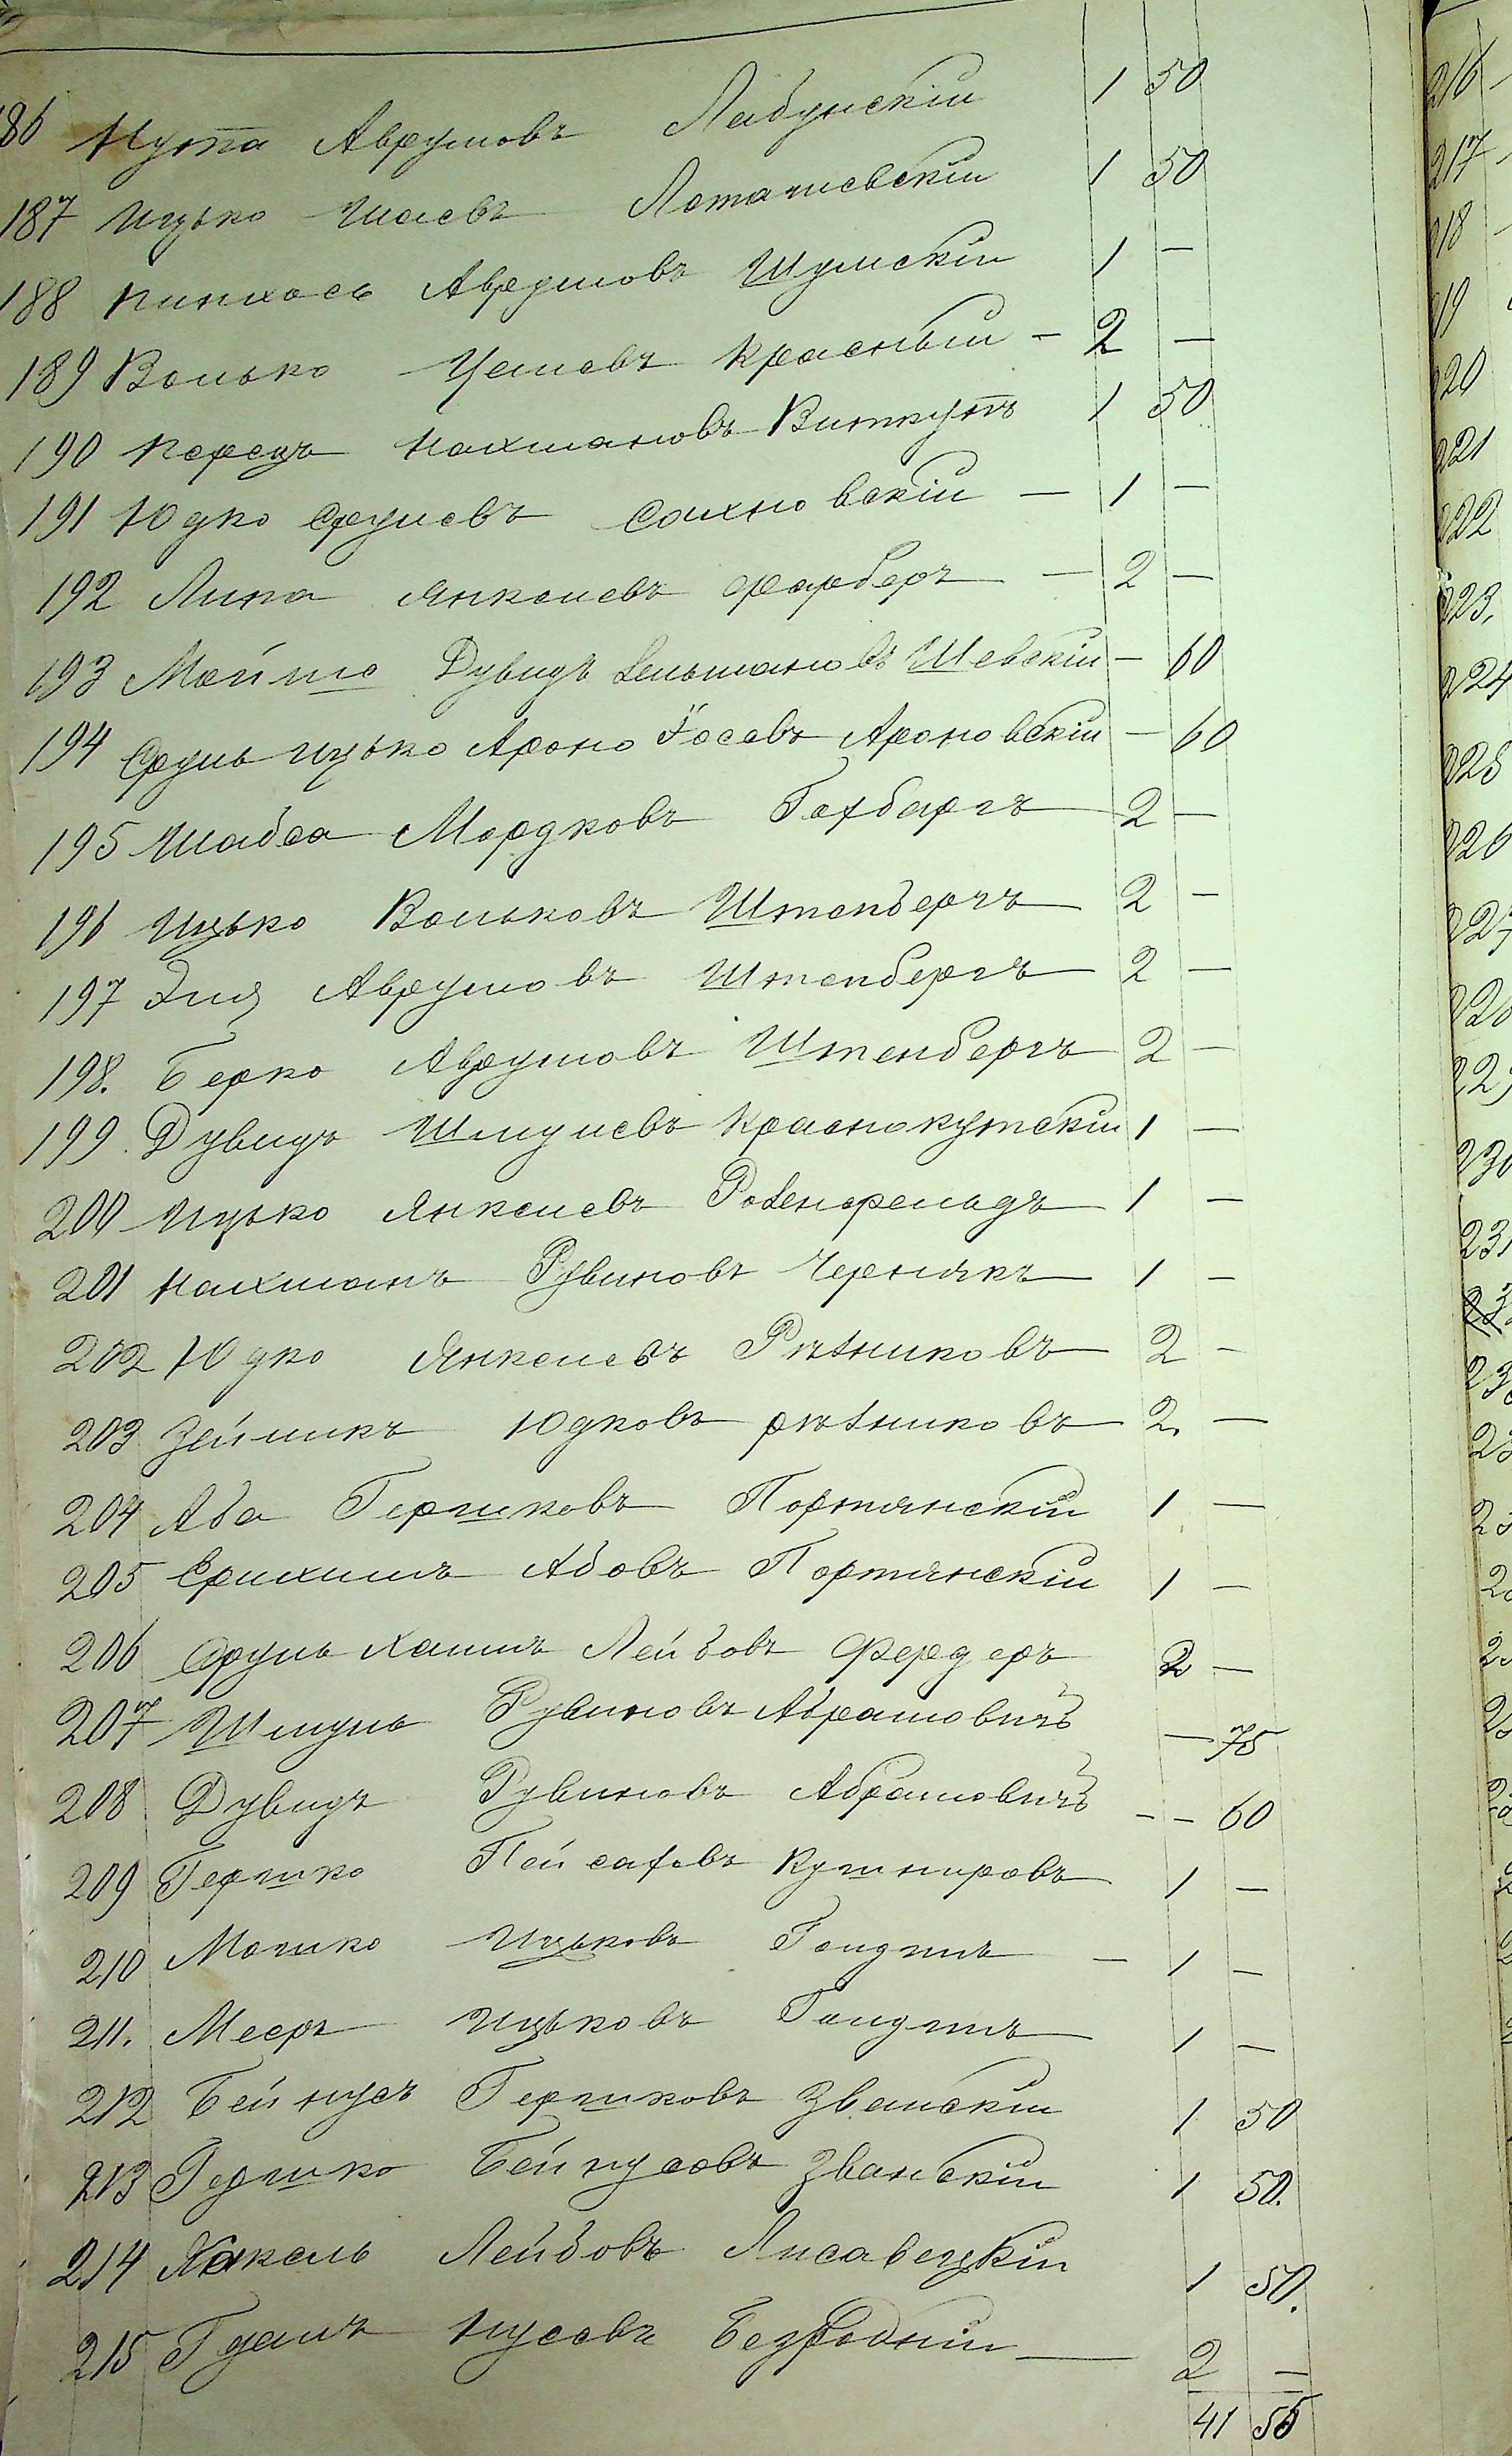 186 Нута Аврумовъ Лабунскій 1 50
187 Ицько Шаевъ Лоташевскій 1 50
188 Пинхасъ Аврумовъ Шумскій 1 —
189 Волько Красный — 2 —
190 Перецъ Нахмановъ Виткупъ 1 50
191 Юдко Срулевъ Сахновскій — 1 —
192 Липа Янкелевъ Фарберъ — 2 —
193 Мойше Дувидъ Зельмановъ Шевскій — 60
194 Сруль Ицько Ароно Іосевъ Ароновскій — 60
195 Шабса Мордковъ Гехбаргъ 2 —
196 Ицько Вольковъ Штенбергъ 2 —
197 Эля Аврумовъ Штенбергъ 2 —
198. Берко Аврумовъ Штенбергъ 2 —
199. Дувидъ Шмулевъ Краснокутскій 1 —
200 Ицько Янкелевъ Розенфельдъ 1 —
201 Нахманъ Рувиновъ Чернякъ 1 —
202 Юдко Янкелевъ Рѣзниковъ 2 —
203 Зейликъ Юдковъ Рѣзниковъ 2. —
204 Аба Гершковъ Портянскій 1 —
205 Ерихимъ Абовъ Портянскій 1 —
206 Сруль Хаимъ Лейбовъ Фердеръ 2 —
207 Шмуль Рувиновъ Абрамовичъ — 75
208 Дувидъ Рувиновъ Абрамовичъ — — 60
209 Гершко Пейсаховъ Кушнировъ 1 —
210 Мошко Ицьковъ — 1 —
211. Мееръ Ицьковъ 1 —
212 Бейнусъ Гершковъ Званскій 1 50
213 Гершко Бейнусовъ Званскій 1 50.
214 Хакель Лейбовъ Лисавецкій 1 50.
215 Нусевъ Безродній — 2 —
41 55
216
217
218
219
220
221
222
223.
224
225
226
227
228
229
230
231